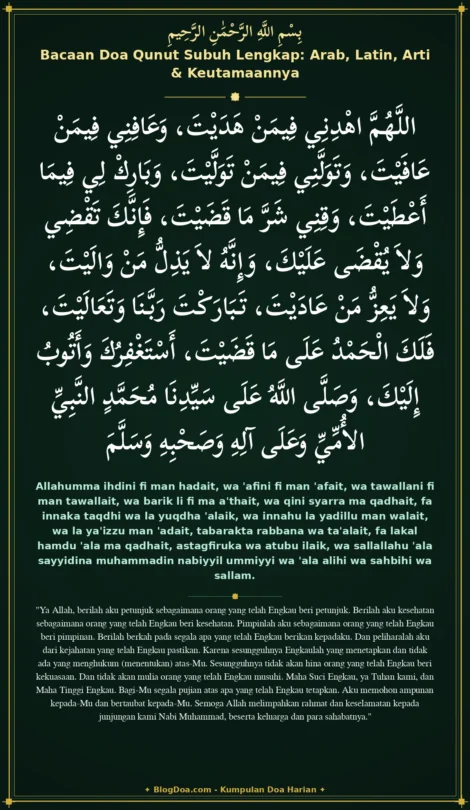 بِسْمِ اللَّهِ الرَّحْمَٰنِ الرَّحِيمِ
Bacaan Doa Qunut Subuh Lengkap: Arab, Latin, Arti
& Keutamaannya
اللَّهُمَّ اهْدِنِي فِيمَنْ هَدَيْتَ، وَعَافِنِي فِيمَنْ
عَافَيْتَ، وَتَوَلَّنِي فِيمَنْ تَوَلَّيْتَ، وَبَارِكْ لِي فِيمَا
أَعْطَيْتَ، وَقِنِي شَرَّ مَا قَضَيْتَ، فَإِنَّكَ تَقْضِي
وَلاَ يُقْضَى عَلَيْكَ، وَإِنَّهُ لاَ يَذِلُّ مَنْ وَالَيْتَ،
وَلاَ يَعِزُّ مَنْ عَادَيْتَ، تَبَارَكْتَ رَبَّنَا وَتَعَالَيْتَ،
فَلَكَ الْحَمْدُ عَلَى مَا قَضَيْتَ، أَسْتَغْفِرُكَ وَأَتُوبُ
إِلَيْكَ، وَصَلَّى اللَّهُ عَلَى سَيِّدِنَا مُحَمَّدٍ النَّبِيِّ
الأُمِّيِّ وَعَلَى آلِهِ وَصَحْبِهِ وَسَلَّمَ
Allahumma ihdini fi man hadait, wa 'afini fi man 'afait, wa tawallani fi
man tawallait, wa barik li fi ma a'thait, wa qini syarra ma qadhait, fa
innaka taqdhi wa la yuqdha 'alaik, wa innahu la yadillu man walait,
wa la ya'izzu man 'adait, tabarakta rabbana wa ta'alait, fa lakal
hamdu 'ala ma qadhait, astagfiruka wa atubu ilaik, wa sallallahu 'ala
sayyidina muhammadin nabiyyil ummiyyi wa 'ala alihi wa sahbihi wa
sallam.
"Ya Allah, berilah aku petunjuk sebagaimana orang yang telah Engkau beri petunjuk. Berilah aku kesehatan
sebagaimana orang yang telah Engkau beri kesehatan. Pimpinlah aku sebagaimana orang yang telah Engkau
beri pimpinan. Berilah berkah pada segala apa yang telah Engkau berikan kepadaku. Dan peliharalah aku
dari kejahatan yang Engkau pastikan. Karena sesungguhnya Engkaulah yang menetapkan dan tidak
ada yang menghukum (menentukan) atas-Mu. Sesungguhnya tidak akan hina orang yang telah Engkau beri
kekuasaan. Dan tidak akan mulia orang yang telah Engkau musuhi. Maha Suci Engkau, ya Tuhan kami, dan
Maha Tinggi Engkau. Bagi-Mu segala pujian atas apa yang telah Engkau tetapkan. Aku memohon ampunan
kepada-Mu dan bertaubat kepada-Mu. Semoga Allah melimpahkan rahmat dan keselamatan kepada
junjungan kami Nabi Muhammad, beserta keluarga dan para sahabatnya."
✦ BlogDoa.com - Kumpulan Doa Harian ✦